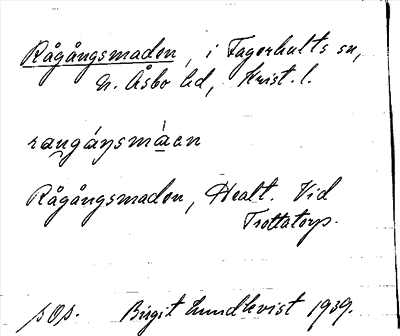 Rågångsmaden, i Fagerhults sn,
N. Åsbo hd, Krist. l.
rangáŋsmàen
Rågångsmaden, Vid
Trottatorp.
Birgit Lundkvist 1939.